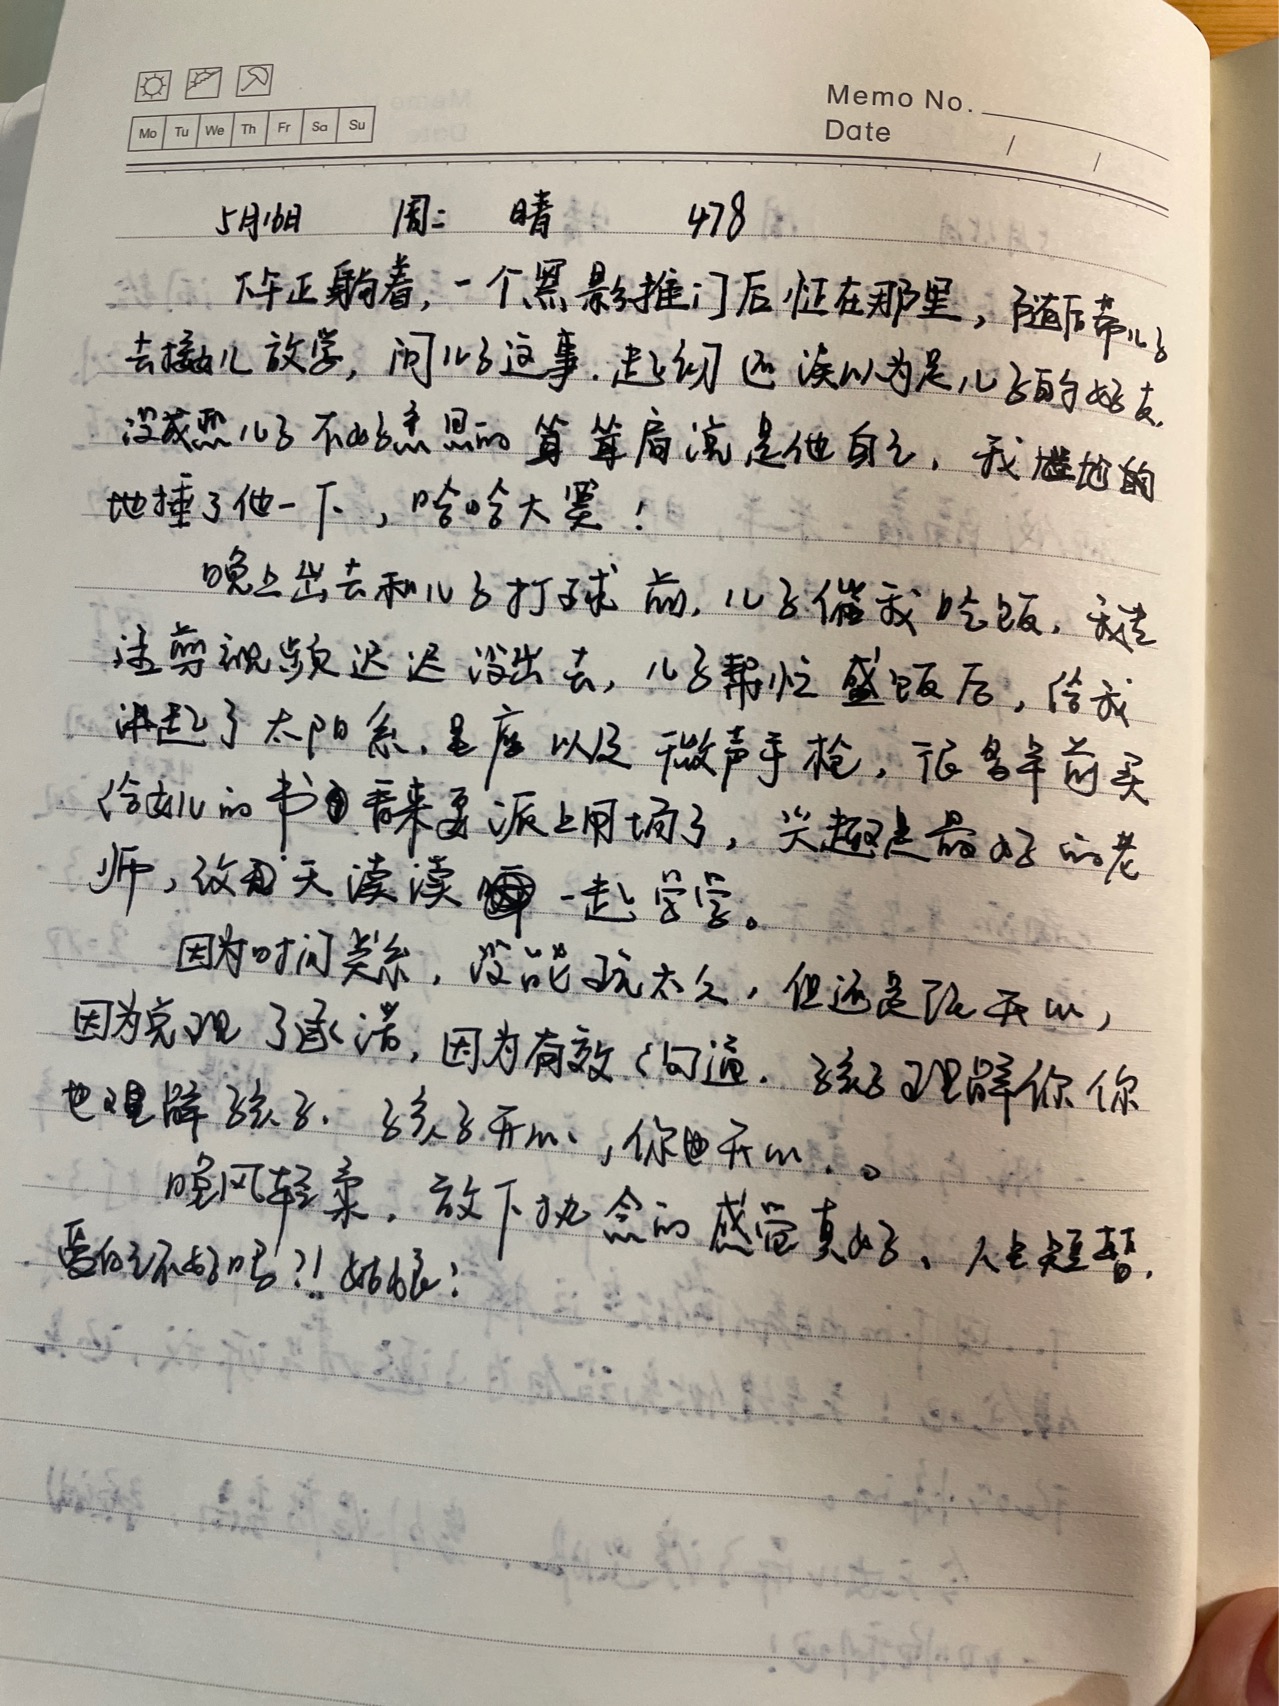 Mo Tu We Th Fr Sa Su
Memo No.
Date / /
5月16日 周二 晴 478
下午正躺着，一个黑影推门后怔在那里，随后带儿子
去接女儿放学，问儿子这事.起初还误以为是儿子的好友.
没成想儿子不好意思的耸耸肩说是他自己，我尴尬的
地捶了他一下，哈哈大笑！
晚上出去和儿子打球前，儿子催我吃饭，我专
注剪视频迟迟没出去，儿子帮忙盛饭后，给我
讲起了太阳系.星座以及微声手枪，很多年前买
给女儿的书看来要派上用场了，兴趣是最好的老
师，改天读读一起学学。
因为时间关系，没能玩太久，但还是很开心，
因为兑现了承诺，因为有效沟通.孩子理解你你
也理解孩子.孩子开心，你也开心.。
晚风轻柔，放下执念的感觉真好、人生短暂.
爱自己不好吗?!